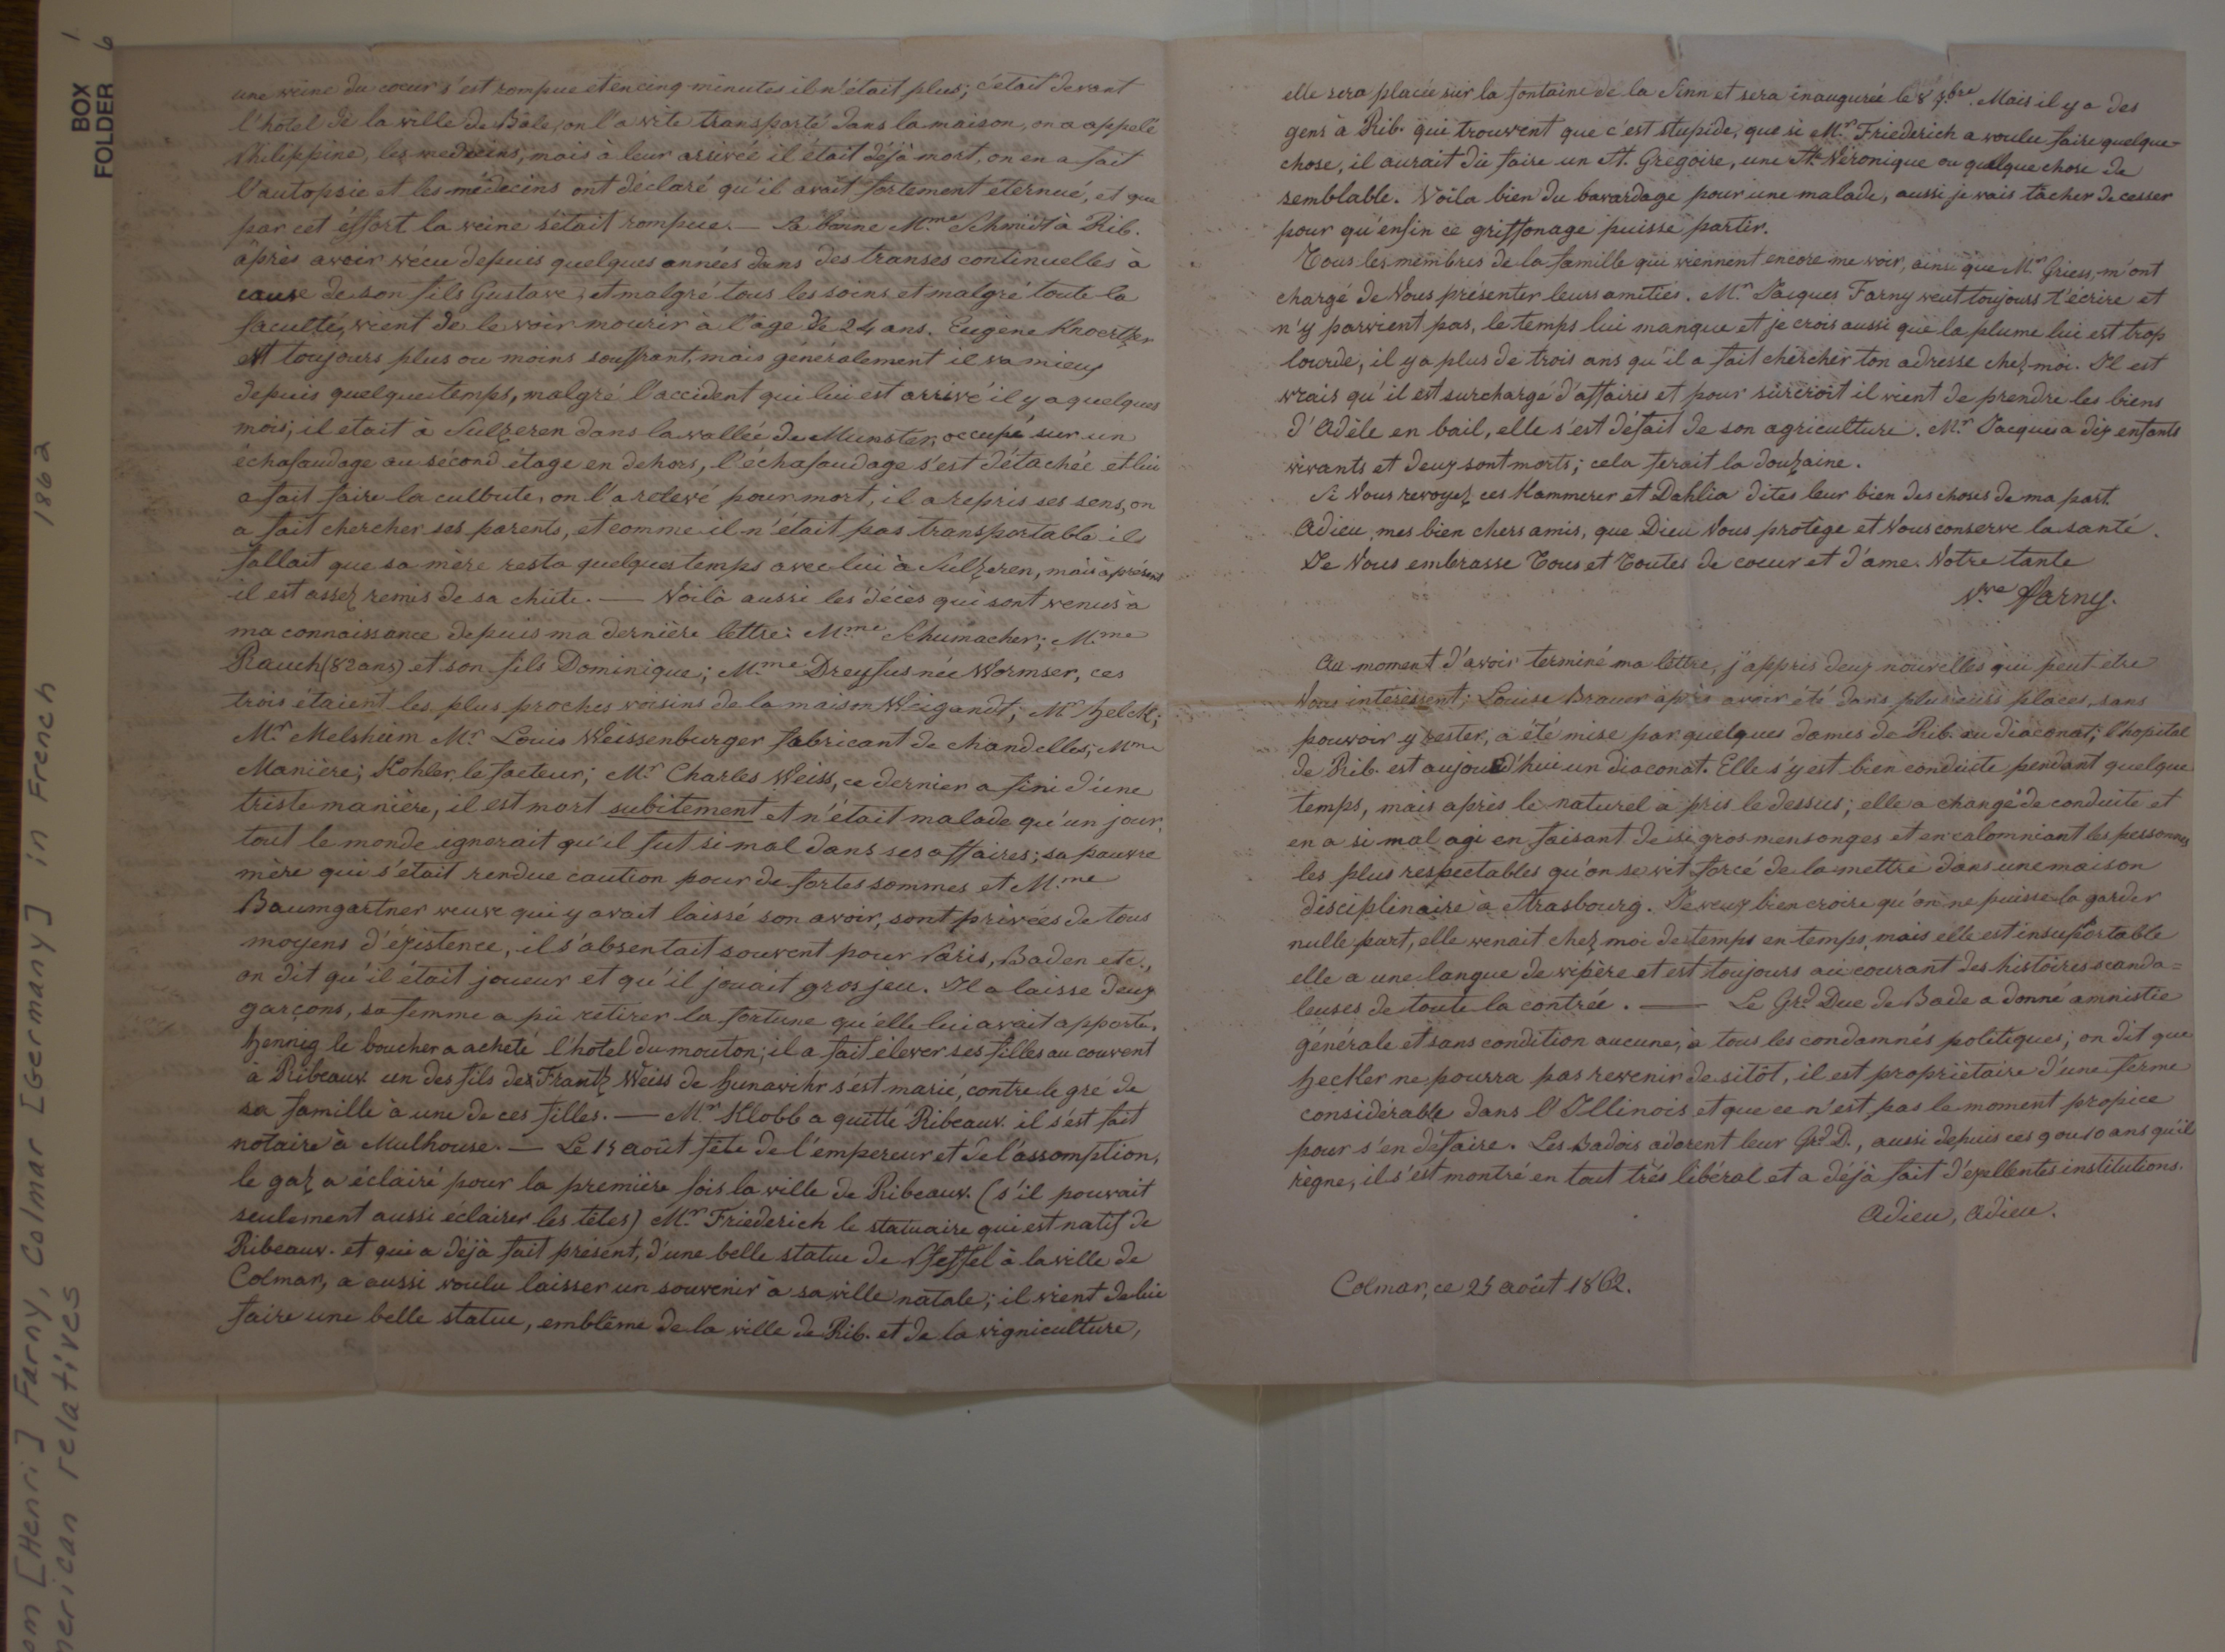 BOX 1
FOLDER 6
om [Henri] Farny, Colmar [Germany] in French 1862
merican relatives
une veine du coeur s'est rompue et en cinq minutes il n'était plus; c'était devant
l'hotel de la ville de Bâle, on l'a vite transporté dans la maison, on a appelé
Philippine, les medecins, mais à leur arrivée il était déjà mort, on en a fait
l'autopsie et les médecins ont déclaré qu'il avait fortement éternué, et que
par cet éffort la veine s'était rompue. — La bonne M.me Schmidt à Rib.
après avoir vécu depuis quelques années dans des transes continuelles à
cause de son fils Gustave, et malgré tous les soins et malgré toute la
faculté, vient de le voir mourir à l'age de 24 ans. Eugène Knoertzer
est toujours plus ou moins souffrant, mais généralement il va mieux
depuis quelque temps, malgré l'accident qui lui est arrivé il y a quelques
mois; il etait à Sulzeren dans la vallée de Munster, occupé sur un
échafaudage au sécond étage en dehors, l'échafaudage s'est détachée et lui
a fait faire la culbute, on l'a relevé pour mort, il a repris ses sens, on
a fait chercher ses parents, et comme il n'était pas transportable il
fallait que sa mère resta quelques temps avec lui à Sulzeren, mais à présent
il est assez remis de sa chûte. — Voilà aussi les décès qui sont venus à
ma connaissance depuis ma dernière lettre: M.me Schumacher; M.me
Rauch (82 ans) et son fils Dominique; M.me Dreyfus née Wormser, ces
trois étaient les plus proches voisins de la maison Weigandt; Mr Helck;
Mr Melsheim Mr Louis Weissenburger fabricant de chandelles; Mme
Manière; Kohler, le facteur; Mr Charles Weiss, ce dernier a fini d'une
triste manière, il est mort subitement et n'était malade qu'un jour,
tout le monde ignorait qu'il fut si mal dans ses affaires; sa pauvre
mère qui s'était rendue caution pour de fortes sommes et M.me
Baumgartner veuve qui y avait laissé son avoir, sont privées de tous
moyens d'éxistence, il s'absentait souvent pour Paris, Baden etc.,
on dit qu'il était joueur et qu'il jouait gros jeu. Il a laisse deux
garçons, sa femme a pu retirer la fortune qu'elle lui avait apporté.
Hennig le boucher a acheté l'hotel du mouton; il a fait élever ses filles au couvent
à Ribeauv. un des fils de Frantz Weiss de Hunawihr s'est marié, contre le gré de
sa famille à une de ces filles. — Mr Klobb a quitté Ribeauv. il s'est fait
notaire à Mulhouse. — Le 15 août fête de l'empereur et de l'assomption,
le gaz a éclairé pour la première fois la ville de Ribeauv. (s'il pouvait
seulement aussi éclairer les têtes) Mr Friederich le statuaire qui est natif de
Ribeauv. et qui a déjà fait présent, d'une belle statue de Pfeffel à la ville de
Colmar, a aussi voulu laisser un souvenir à sa ville natale; il vient de lui
faire une belle statue, emblême de la ville de Rib. et de la vigniculture,
elle sera placée sur la fontaine de la Sinn et sera inaugurée le 8 7.bre. Mais il y a des
gens à Rib. qui trouvent que c'est stupide, que si Mr Friederich a voulu faire quelque-
chose, il aurait dû faire un St. Gregoire, une Ste Véronique ou quelque chose de
semblable. Voila bien du bavardage pour une malade, aussi je vais tâcher de cesser
pour qu'enfin ce griffonage puisse partir.
Tous les membres de la famille qui viennent encore me voir, ainsi que Mr Griess, m'ont
chargé de Vous présenter leurs amitiés. Mr Jacques Farny veut toujours t'écrire et
n'y parvient pas, le temps lui manque et je crois aussi que la plume lui est trop
lourde, il y a plus de trois ans qu'il a fait chercher ton adresse chez moi. Il est
vrais qu'il est surchargé d'affaires et pour surcroit il vient de prendre les biens
d'Adèle en bail, elle s'est défait de son agriculture. Mr Jacques a dix enfants
vivants et deux sont morts; cela ferait la douzaine.
Si Vous revoyez ces Kammerer et Dahlia dites leur bien des choses de ma part.
Adieu, mes bien chers amis, que Dieu Vous protège et Vous conserve la santé.
Je Vous embrasse Tous et Toutes de coeur et d'ame. Votre tante
Vve Farny.
Au moment d'avoir terminé ma lettre, j'appris deux nouvelles qui peut etre
Vous interessent; Louise Brauer après avoir été dans plusieurs places, sans
pouvoir y rester, a été mise par quelques dames de Rib. au diaconat; l'hopital
de Rib. est aujourd'hui un diaconat. Elle s'y est bien conduite pendant quelque
temps, mais après le naturel a pris le dessus; elle a changé de conduite et
en a si mal agi en faisant de si gros mensonges et en calomniant les personnes
les plus respectables qu'on se vit forcé de la mettre dans une maison
disciplinaire à Strasbourg. Je veux bien croire qu'on ne puisse la garder
nulle part, elle venait chez moi de temps en temps, mais elle est insuportable
elle a une langue de vipère et est toujours au courant des histoires scanda=
leuses de toute la contrée. — Le Grd Duc de Bade a donné amnistie
générale et sans condition aucune, à tous les condamnés politiques; on dit que
Hecker ne pourra pas revenir de sitôt, il est propriétaire d'une ferme
considérable dans l'Illinois et que ce n'est pas le moment propice
pour s'en défaire. Les Badois adorent leur Grd D., aussi depuis ces 9 ou 10 ans qu'il
règne, il s'est montré en tout très libéral et a déjà fait d'exellentes institutions.
Adieu, Adieu.
Colmar, ce 25 août 1862.